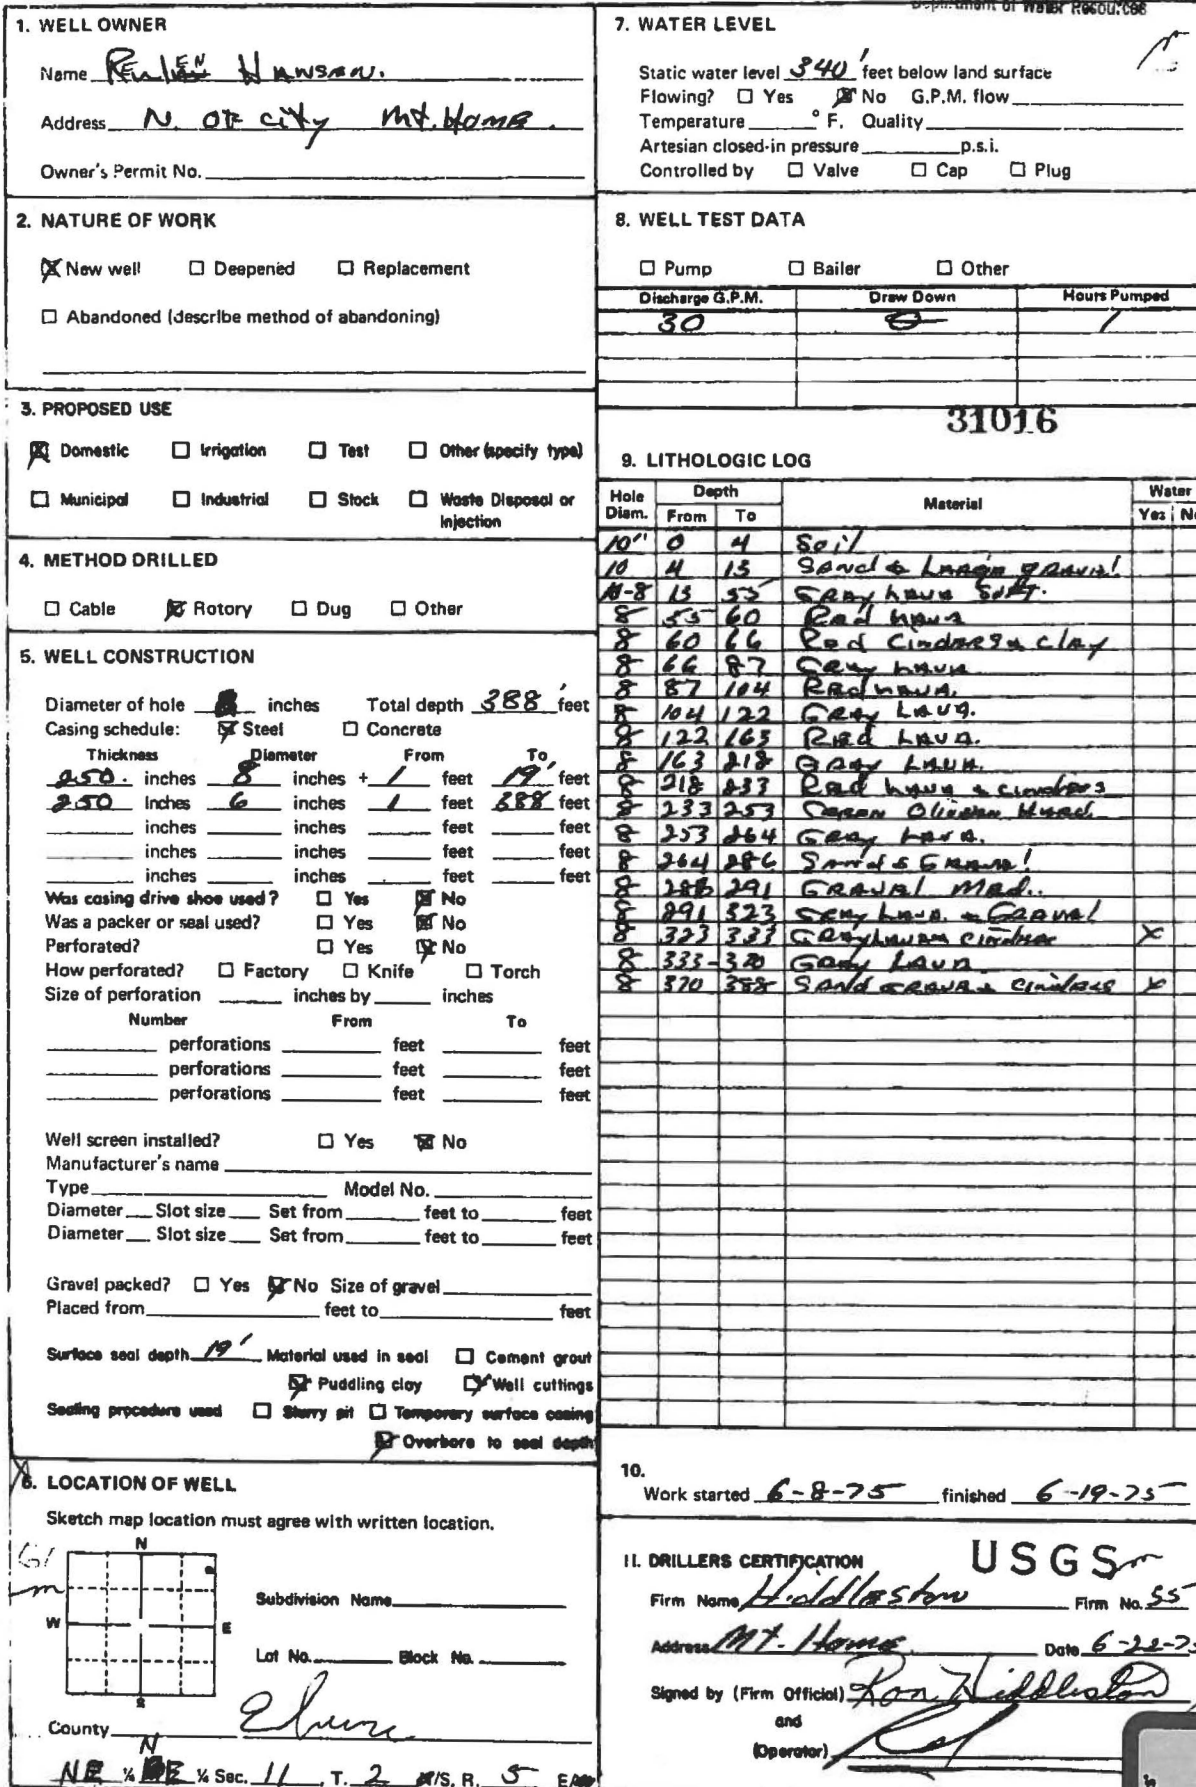 Department of Water Resources
1. WELL OWNER
Name Reuben Hansen.
Address N. OF city Mt. Home.
Owner's Permit No.
2. NATURE OF WORK
New well Deepened Replacement
Abandoned (describe method of abandoning)
3. PROPOSED USE
Domestic Irrigation Test Other (specify type)
Municipal Industrial Stock Waste Disposal or Injection
4. METHOD DRILLED
Cable Rotory Dug Other
5. WELL CONSTRUCTION
Diameter of hole inches Total depth 388' feet
Casing schedule: Steel Concrete
Thickness Diameter From To
250. inches 8 inches + 1 feet 19' feet
250 Inches 6 inches 1 feet 388 feet
inches inches feet feet
inches inches feet feet
inches inches feet feet
Was casing drive shoe used? Yes No
Was a packer or seal used? Yes No
Perforated? Yes No
How perforated? Factory Knife Torch
Size of perforation inches by inches
Number From To
perforations feet feet
perforations feet feet
perforations feet feet
Well screen installed? Yes No
Manufacturer's name
Type Model No.
Diameter Slot size Set from feet to feet
Diameter Slot size Set from feet to feet
Gravel packed? Yes No Size of gravel
Placed from feet to feet
Surface seal depth 19' Material used in seal Cement grout
Puddling clay Well cuttings
Sealing procedure used Slurry pit Temporary surface casing
Overbore to seal depth
6. LOCATION OF WELL
Sketch map location must agree with written location.
N
W E
S
Subdivision Name
Lot No. Block No.
County Elmore
N
NE ¼ ¼ Sec. 11 , T. 2 N/S, R. 5 E/W
7. WATER LEVEL
Static water level 340' feet below land surface
Flowing? Yes No G.P.M. flow
Temperature ° F. Quality
Artesian closed-in pressure p.s.i.
Controlled by Valve Cap Plug
8. WELL TEST DATA
Pump Bailer Other
Discharge G.P.M. Draw Down Hours Pumped
30 0 1
31016
9. LITHOLOGIC LOG
Hole Diam. Depth From To Material Water Yes No
10" 0 4 Soil
10 4 15 Sand & Large gravel
10-8 15 55 Gray Lava Soft.
8 55 60 Red Lava
8 60 66 Red Cinders & Clay
8 66 87 Gray Lava
8 87 104 Red Lava.
8 104 122 Gray Lava.
8 122 163 Red Lava.
8 163 218 Gray Lava.
8 218 233 Red Lava & cinders
8 233 253 Hard.
8 253 264 Gray Lava.
8 264 286 Sand & Gravel
8 286 291 Gravel Med.
8 291 323 Gray Lava. & Gravel
8 323 333 Gray Lava & cinders X
8 333-370 Gray Lava
8 370 388 Sand gravel & cinders X
10.
Work started 6-8-75 finished 6-19-75
11. DRILLERS CERTIFICATION
USGS
Firm Name Hiddleston Firm No. 55
Address Mt. Home Date 6-22-75
Signed by (Firm Official) Ron Hiddleston
and
(Operator)